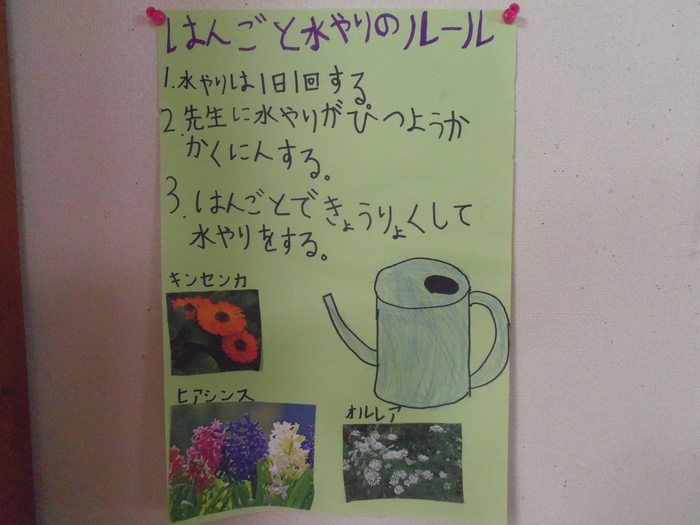 はんごと水やりのルール
1.水やりは1日1回する。
2.先生に水やりがひつようか
かくにんする。
3.はんごとできょうりょくして
水やりをする。
キンセンカ
ヒアシンス
オルレア